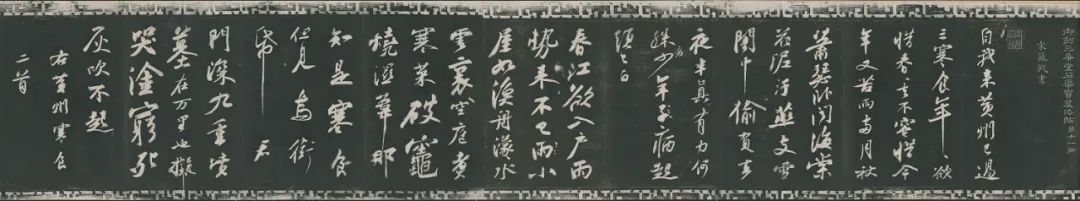 御刻三希堂石渠寶笈法帖第十一冊
宋蘇軾書
自我来黄州已過
三寒食年〻欲
惜春〻去不容惜今
年又苦雨兩月秋
蕭瑟卧聞海棠
花泥汙燕支雪
闇中偷負去
夜半真有力何
殊少年子病起
頭已白
春江欲入户雨
勢来不已雨小
屋如漁舟濛〻水
雲裏空庖煮
寒菜破竈
燒濕葦那
知是寒食
但見烏銜
帋君
門深九重墳
墓在万里也擬
哭塗窮死
灰吹不起
右黄州寒食
二首